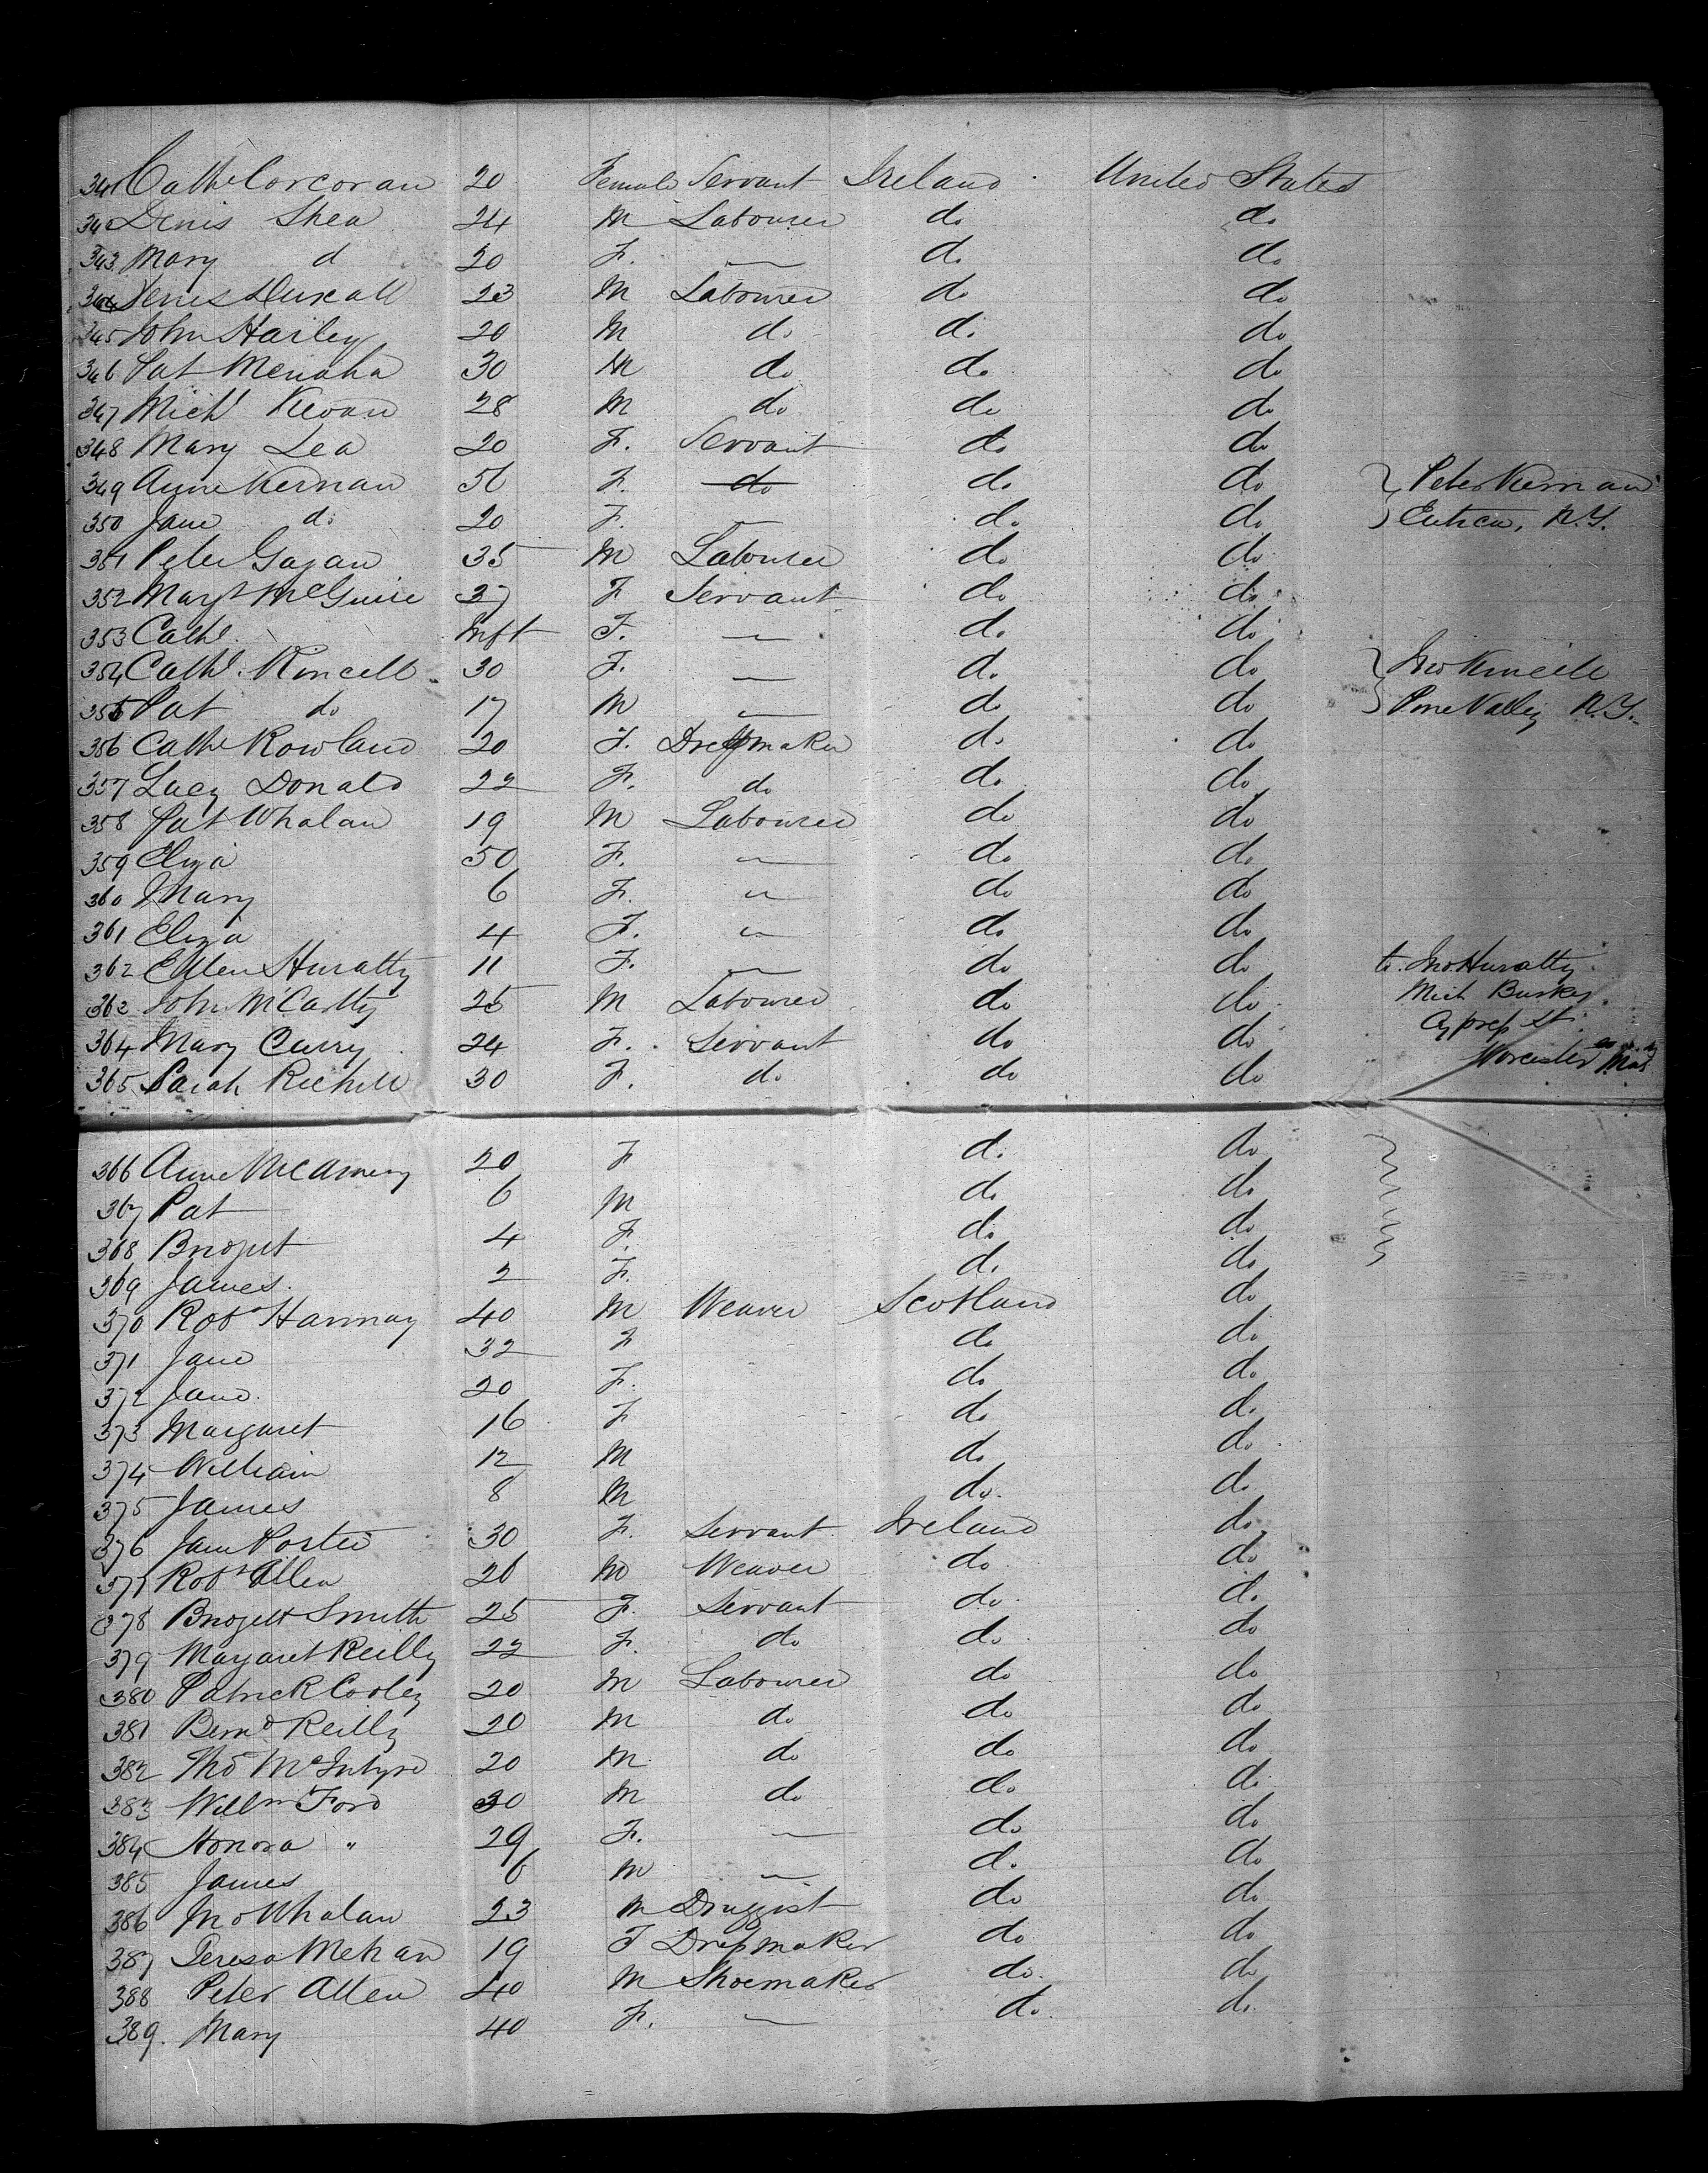 341 Cathe Corcoran 20 Female Servant Ireland United States
342 Denis Shea 24 M Labourer do do
343 Mary d 20 F. — do do
344 Denis 23 M Labourer do do
345 John Harley 20 M do do do
346 Pat Menaha 30 M do do do
347 Michl Kevan 28 M do do do
348 Mary Lea 20 F. Servant do do
349 Anne Kernan 51 F. do do do Peter Kernan
350 Jane do 20 F. — do do Eutica, N.Y.
351 Peter Gagan 35 M Labourer do do
352 Margt McGuire 27 F Servant do do
353 Cathe Inft F. — do do
354 Cathe. Kincell 30 F. — do do Jno Kincell
355 Pat do 17 M — do do Pine Valley N.Y.
356 Cathe Rowland 20 F. Dressmaker do do
357 Lucy Donald 22 F. do do do
358 Pat Whalan 19 M Labourer do do
359 Eliza 50 F. — do do
360 Mary 6 F. — do do
361 Eliza 4 F. — do do
362 Ellen Huratty 11 F. — do do to. Jno. Huratty
362 John McCarthy 25 M Labourer do do Mich Burkes.
364 Mary Curry 24 F. Servant do do Cypress St.
365 Sarah 30 F. do do do Worcester Mas
366 Anne 20 F do do
367 Pat 6 M do do
368 Bridget 4 F. do do
369 James. 2 F. do do
370 Robt Hannay 40 M Weaver Scotland do
371 Jane 32 F do do
372 Jane. 20 F. do do
373 Margaret 16 F do do
374 William 12 M do do
375 James 8 M do. do
376 Jane Porter 30 F. Servant Ireland do
377 Robt Allen 26 M Weaver do do
378 Bridget Smith 25 F. Servant do do
379 Margaret Reilly 22 F. do do do
380 Patrick Cooley 20 M Labourer do do
381 Bernd. Reilly 20 M do do do
382 Tho McIntyre 20 M do do do
383 Willm Ford 30 M do do do
384 Honora " 29 F. — do do
385 James 6 M — do do
386 Jno Whalan 23 M Druggist do do
387 Teresa Mehan 19 F Dressmaker do do
388 Peter Allen 40 M Shoemaker do. do
389. Mary 40 F. — do do